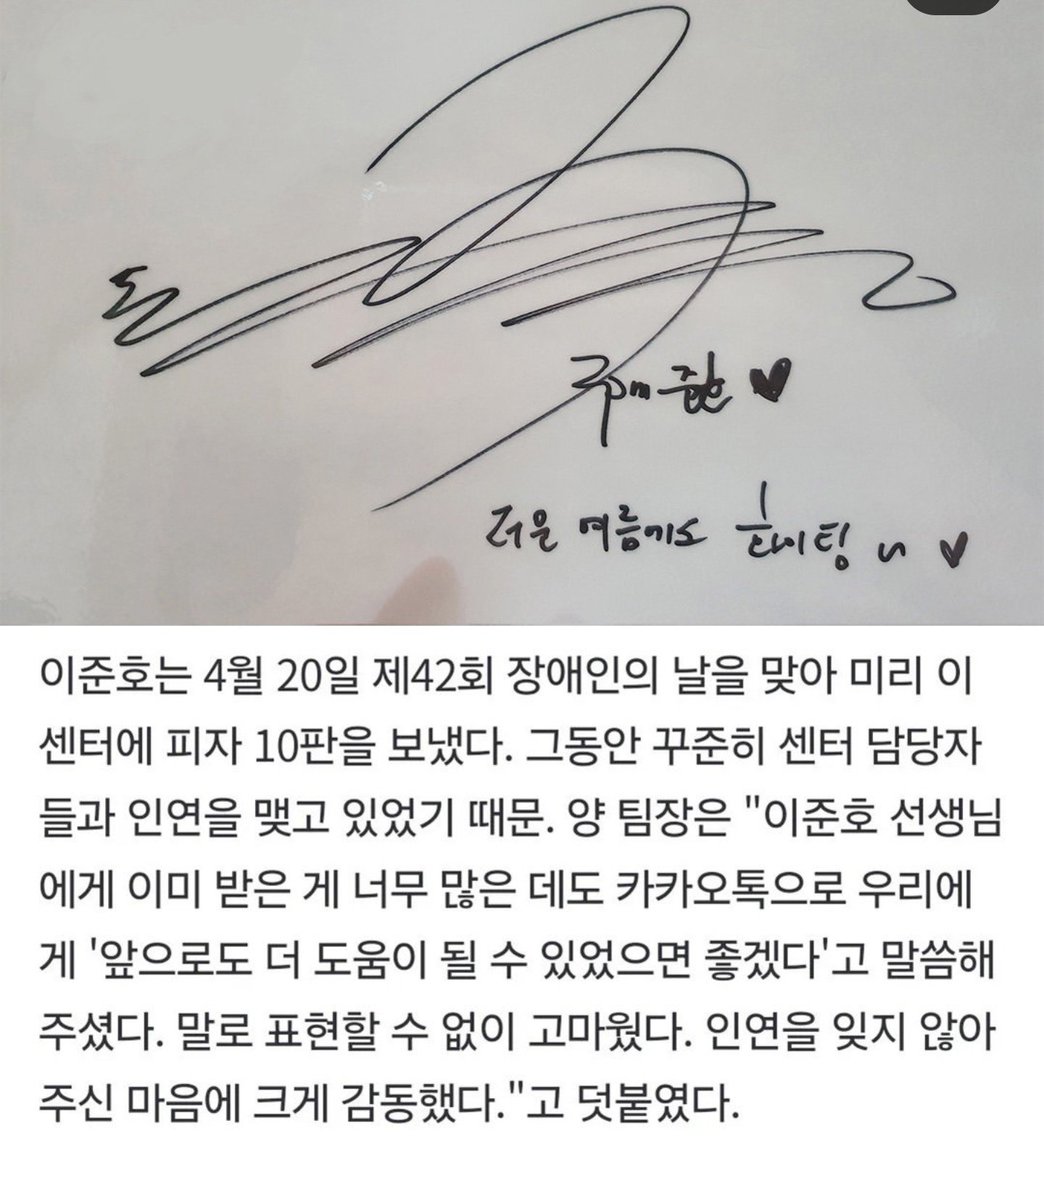 2PM 준호 ♥
더운 여름에도 화이팅 ~ ♥
이준호는 4월 20일 제42회 장애인의 날을 맞아 미리 이
센터에 피자 10판을 보냈다. 그동안 꾸준히 센터 담당자
들과 인연을 맺고 있었기 때문. 양 팀장은 "이준호 선생님
에게 이미 받은 게 너무 많은 데도 카카오톡으로 우리에
게 '앞으로도 더 도움이 될 수 있었으면 좋겠다'고 말씀해
주셨다. 말로 표현할 수 없이 고마웠다. 인연을 잊지 않아
주신 마음에 크게 감동했다."고 덧붙였다.